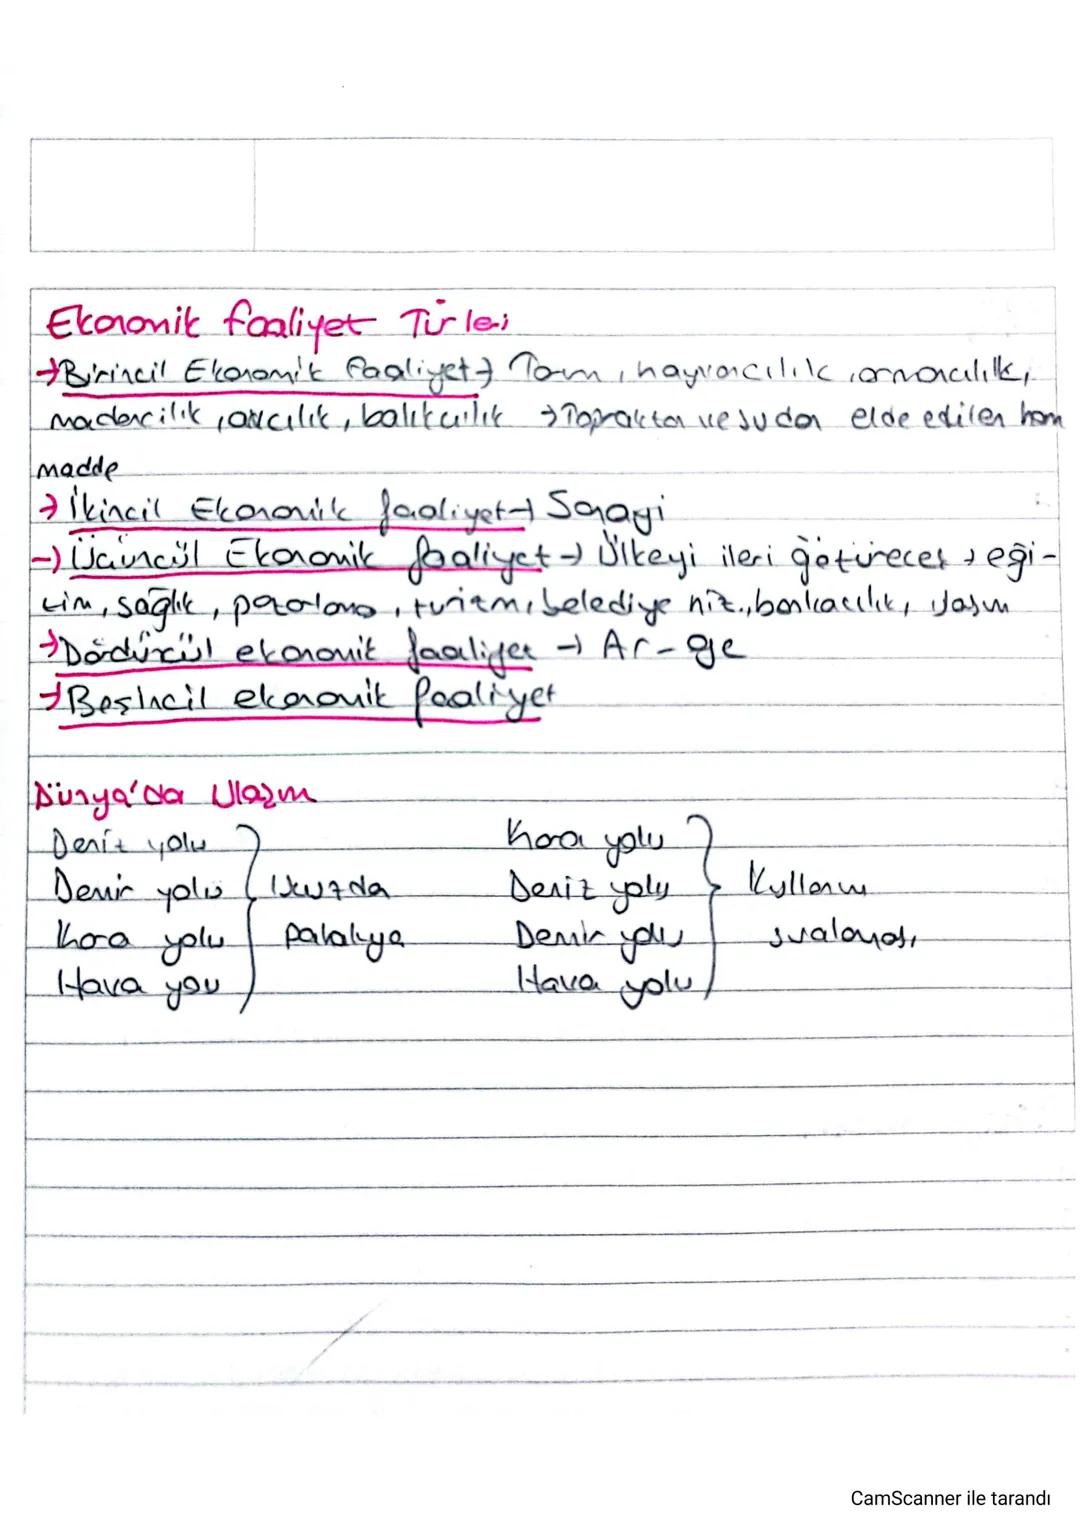 Ekonomik faaliyet Türleri
→Birincil Ekonomik faaliyet→ Tarım, hayvancılık, ormancılık,
madencilik, avcılık, balıkçılık →Topraktan ve sudan elde edilen ham
madde
→İkincil Ekonomik faaliyet→ Sanayi
→Üçüncül Ekonomik faaliyet→ Ülkeyi ileri götürecek, eği-
tim, sağlık, pazarlama, turizm, belediye hiz., bankacılık,
→Dördüncül ekonomik faaliyet → Ar-ge
→Beşincil ekonomik faaliyet
Dünya'da Ulaşım
Deniz yolu Kara yolu
Demir yolu Ucuzdan Deniz yolu Kullanım
Kara yolu pahalıya Demir yolu sıralaması
Hava you Hava yolu
CamScanner ile tarandı